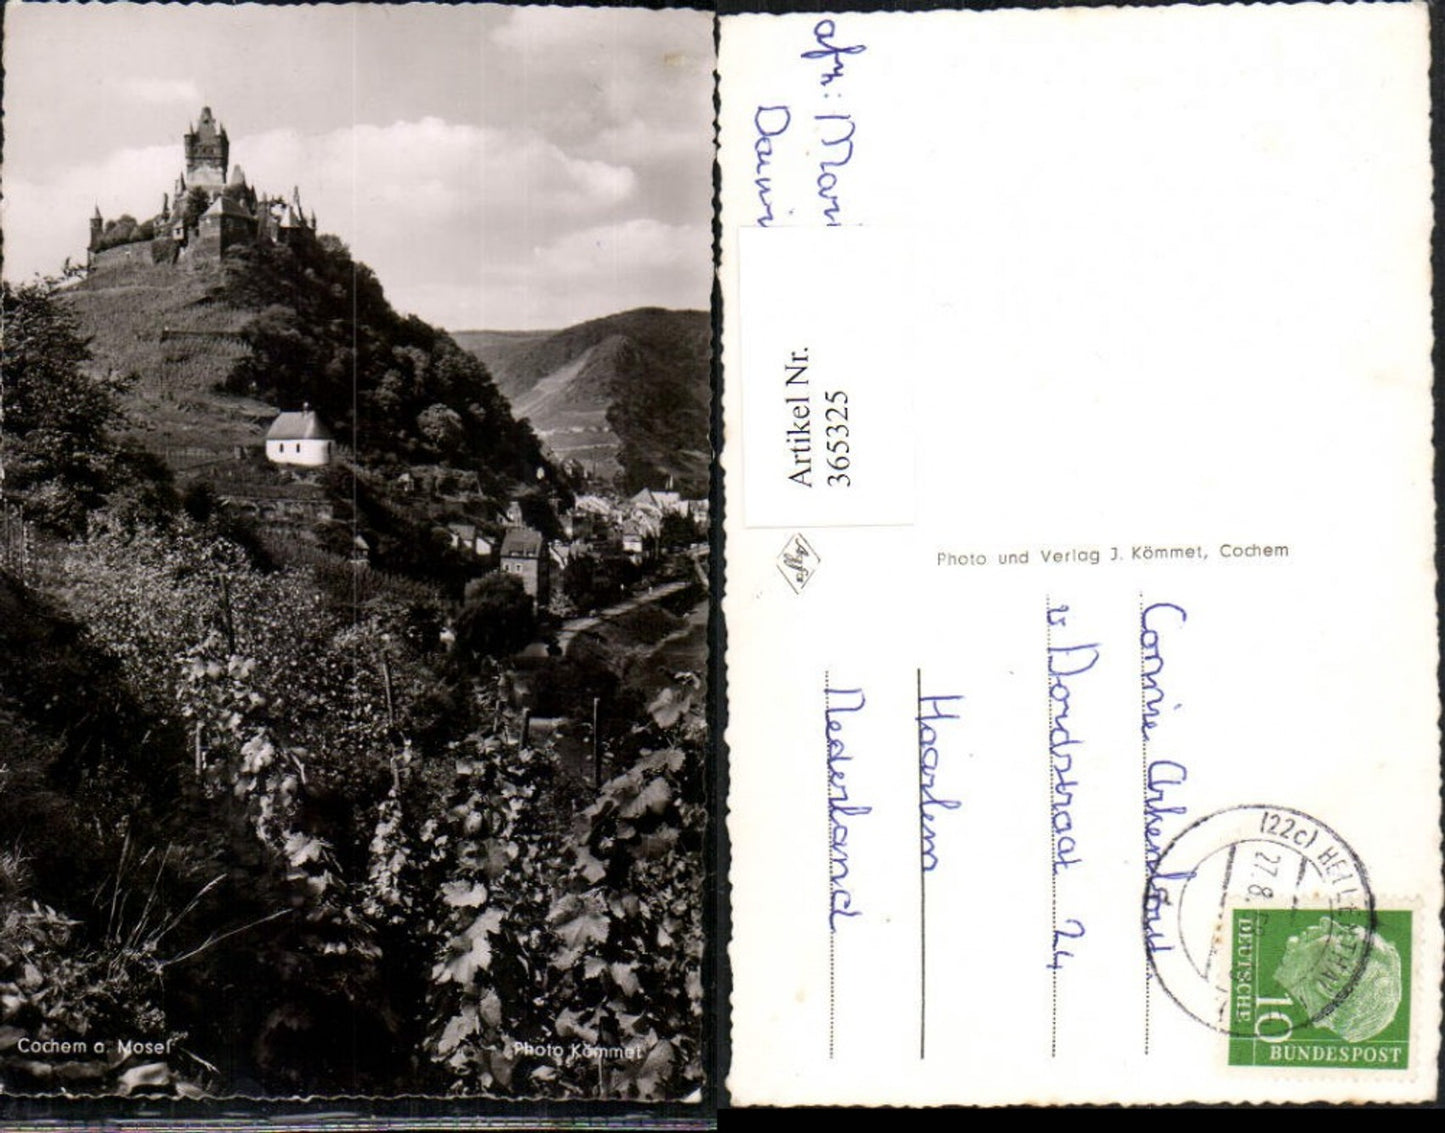 Cochem a. Mosel
Photo Kömmet
afz: Mari
Artikel Nr.
365325
Agfa
Photo und Verlag J. Kömmet, Cochem
Connie
v. Dondstraat 24
Haarlem
Nederland
(22c)
27.8.
DEUTSCHE
10
BUNDESPOST